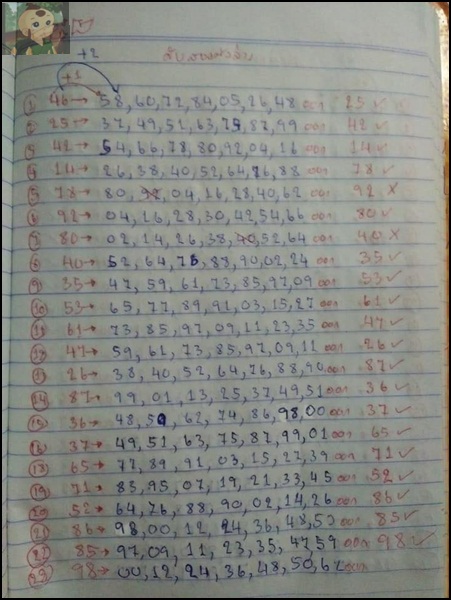 +2
+1
① 46→ 58,60,72,84,05,26,48 ออก 25 ✓
② 25→ 37,49,51,63,75,87,99 ออก 42 ✓
③ 42→ 54,66,78,80,92,04,16 ออก 14 ✓
④ 14→ 26,38,40,52,64,76,88 ออก 78 ✓
⑤ 78→ 80,92,04,16,28,40,62 ออก 92 ✗
⑥ 92→ 04,16,28,30,42,54,66 ออก 80 ✓
⑦ 80→ 02,14,26,38,40,52,64 ออก 40 ✗
⑧ 40→ 52,64,76,88,90,02,24 ออก 35 ✓
⑨ 35→ 47,59,61,73,85,97,09 ออก 53 ✓
⑩ 53→ 65,77,89,91,03,15,27 ออก 61 ✓
⑪ 61→ 73,85,97,09,11,23,35 ออก 47 ✓
⑫ 47→ 59,61,73,85,97,09,11 ออก 26 ✓
⑬ 26→ 38,40,52,64,76,88,90 ออก 87 ✓
⑭ 87→ 99,01,13,25,37,49,51 ออก 36 ✓
⑮ 36→ 48,50,62,74,86,98,00 ออก 37 ✓
⑯ 37→ 49,51,63,75,87,99,01 ออก 65 ✓
⑱ 65→ 77,89,91,03,15,27,39 ออก 71 ✓
⑲ 71→ 83,95,07,19,21,33,45 ออก 52 ✓
⑳ 52→ 64,76,88,90,02,14,26 ออก 86 ✓
㉑ 86→ 98,00,12,24,36,48,50 ออก 85 ✓
㉒ 85→ 97,09,11,23,35,47,59 ออก 98 ✓
㉓ 98→ 00,12,24,36,48,50,62 ออก